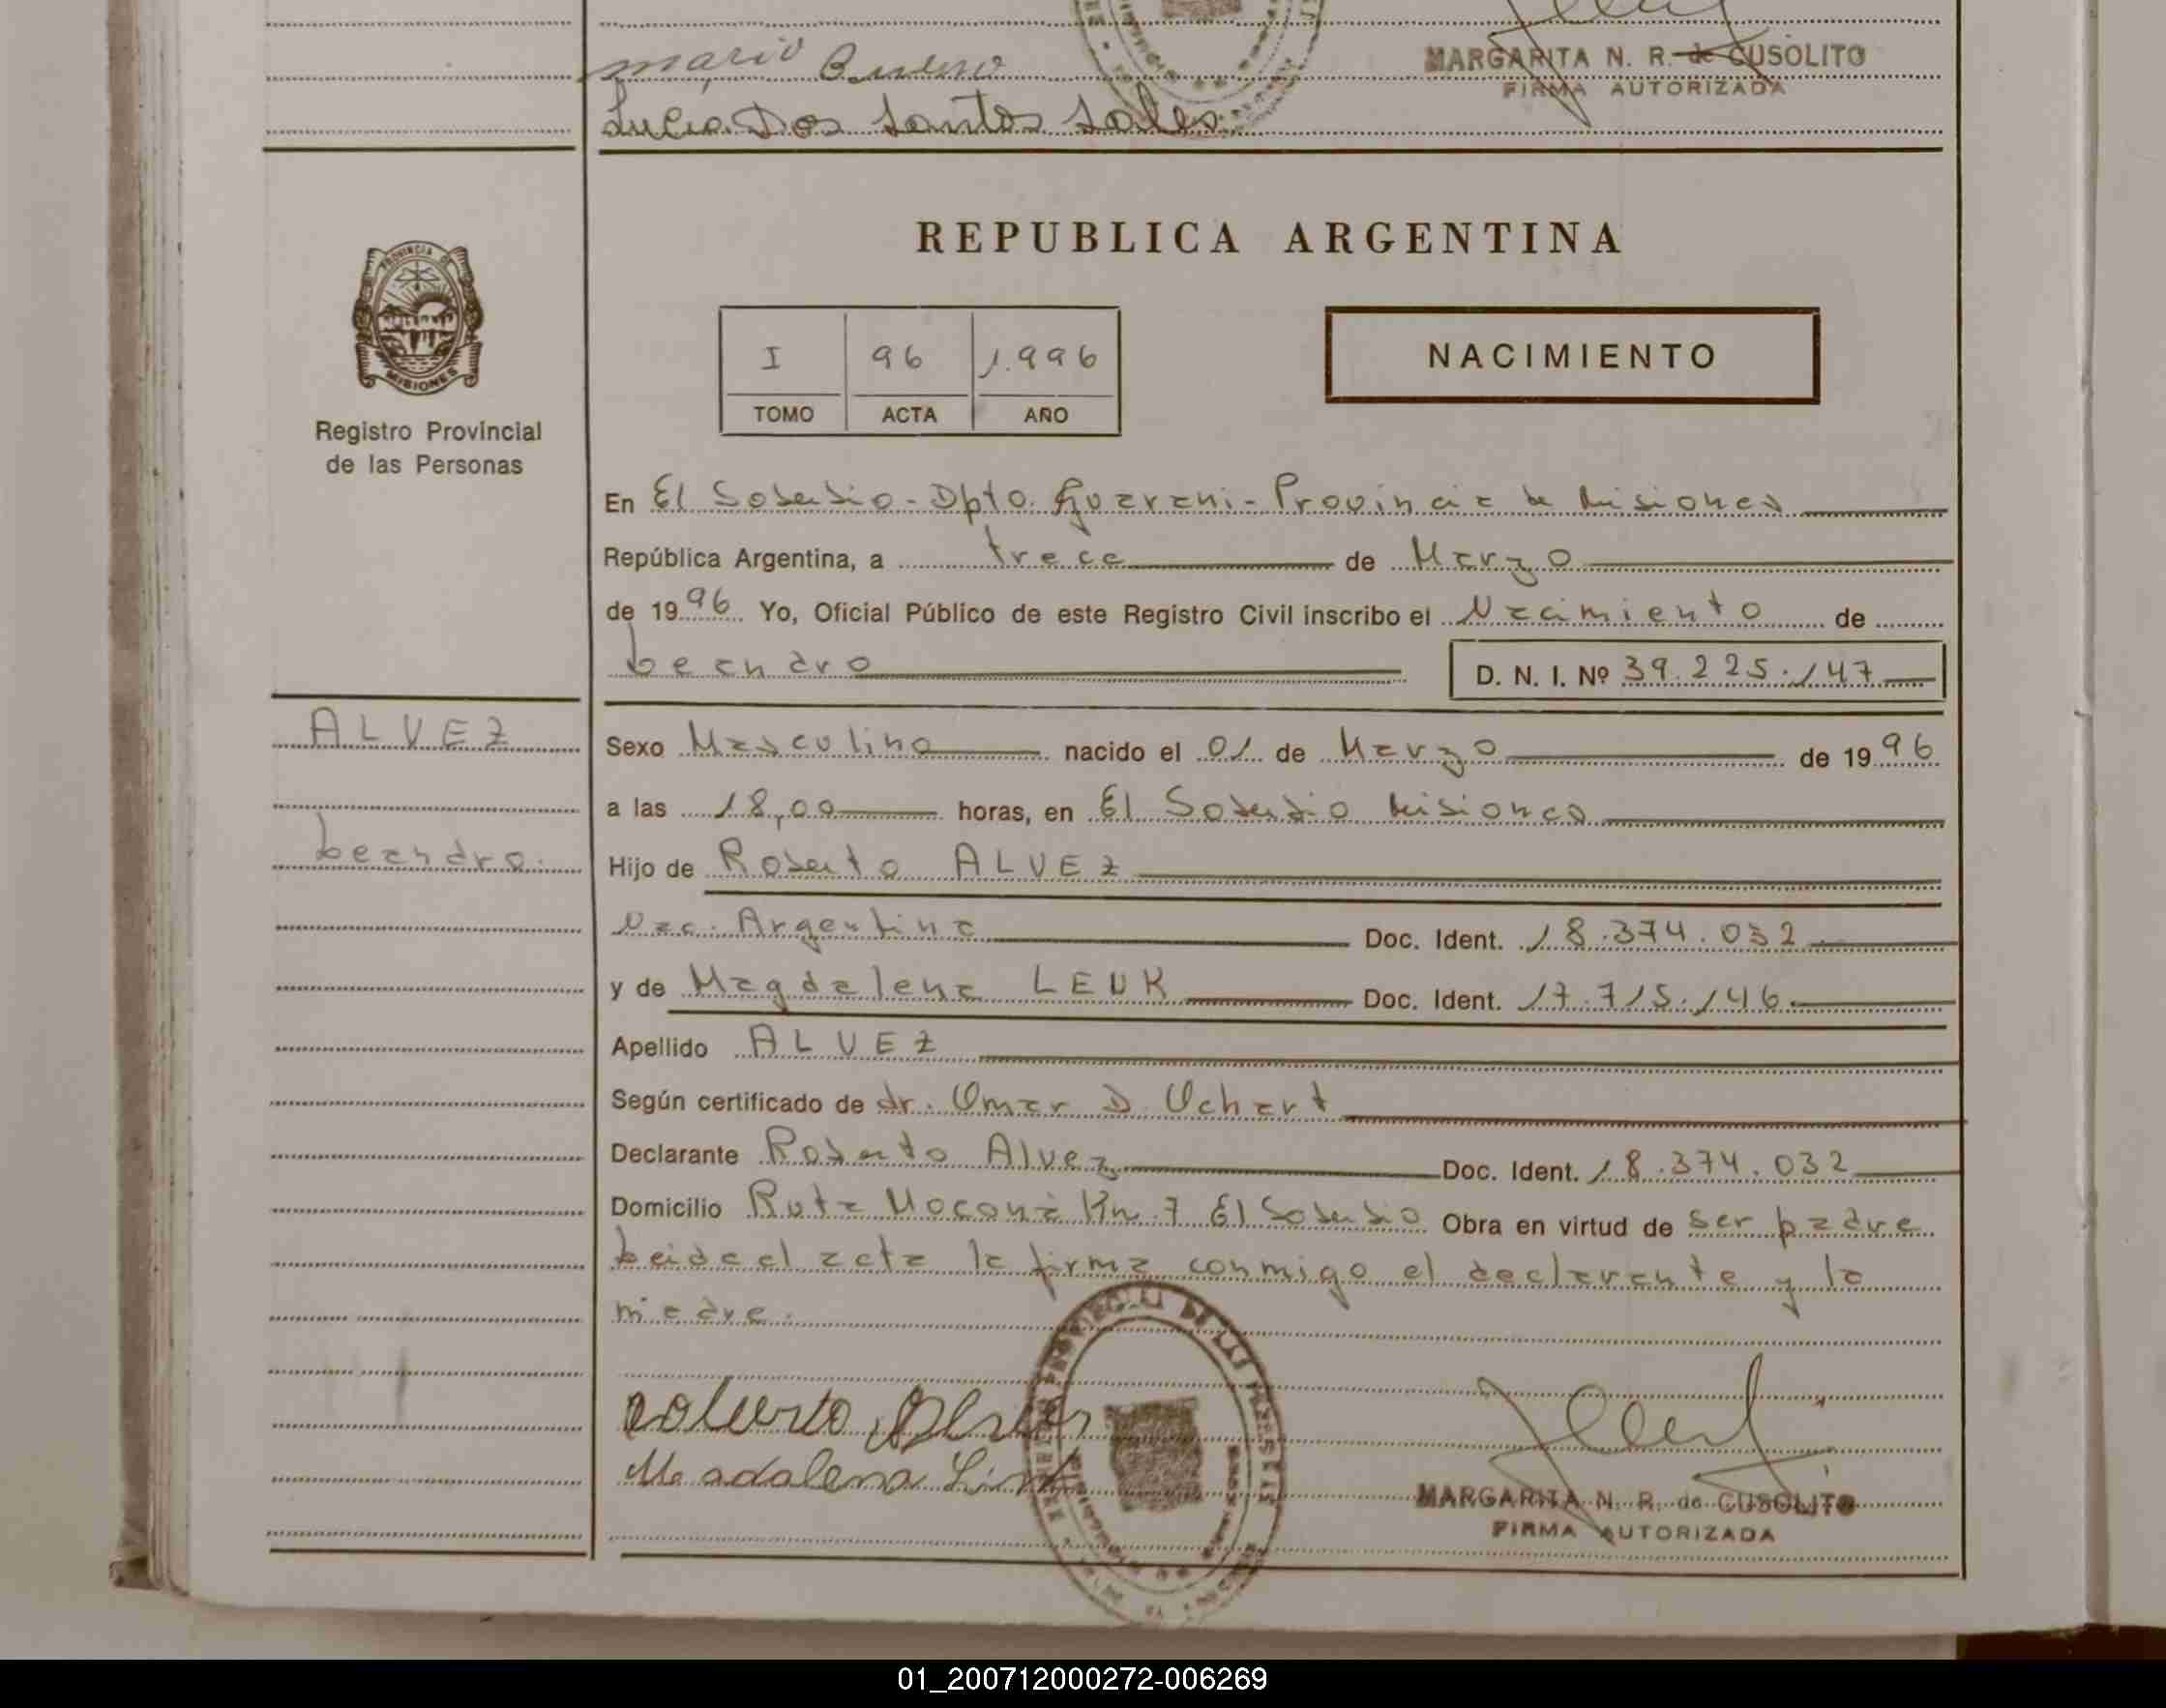 Mario Bueno
MARGARITA N. R. de CUSOLITO
FIRMA AUTORIZADA
Lucia Dos Santos Sales
REPUBLICA ARGENTINA
PROVINCIA DE
MISIONES
Registro Provincial
de las Personas
I 96 1.996
TOMO ACTA AÑO
NACIMIENTO
En El Soberbio - Dpto. Guarani - Provincia de Misiones
República Argentina, a trece de Marzo
de 1996 Yo, Oficial Público de este Registro Civil inscribo el Nacimiento de
Leandro D. N. I. Nº 39.225.147
ALVEZ
Sexo Masculino nacido el 01 de Marzo de 1996
a las 18,00 horas, en El Soberbio Misiones
Leandro.
Hijo de Roberto ALVEZ
Nac. Argentina Doc. Ident. 18.374.032
y de Magdalena LEUK Doc. Ident. 17.715.146
Apellido ALVEZ
Según certificado de dr. Omar D. Uchart
Declarante Roberto Alvez Doc. Ident. 18.374.032
Domicilio Ruta Moconá Km. 7 El Soberbio Obra en virtud de ser padre
Leida el acta la firma conmigo el declarante y la
madre.
Roberto Alvez
Madalena
MARGARITA N. R. de CUSOLITO
FIRMA AUTORIZADA
01_200712000272-006269